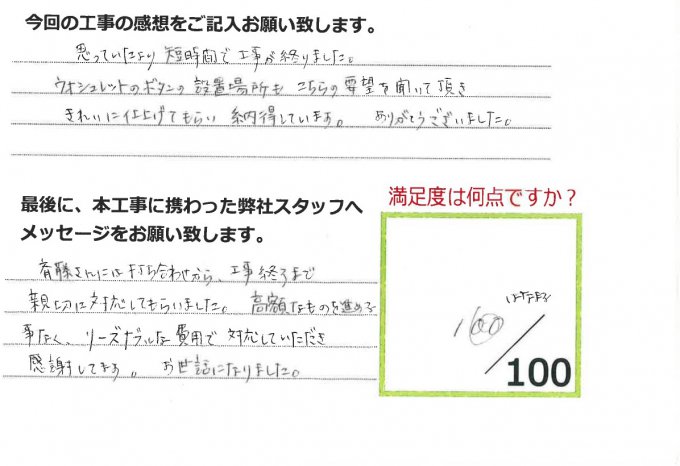 今回の工事の感想をご記入お願い致します。
思っていたより短時間で工事が終りました。
ウォシュレットのボタンの設置場所もこちらの要望を聞いて頂き
きれいに仕上げてもらい納得しています。ありがとうございました。
最後に、本工事に携わった弊社スタッフへ
メッセージをお願い致します。
斉藤さんには打ち合わせから、工事終了まで
親切に対応してもらいました。高額なものを進める
事なく、リーズナブルな費用で対応していただき
感謝してます。お世話になりました。
満足度は何点ですか?
100
100